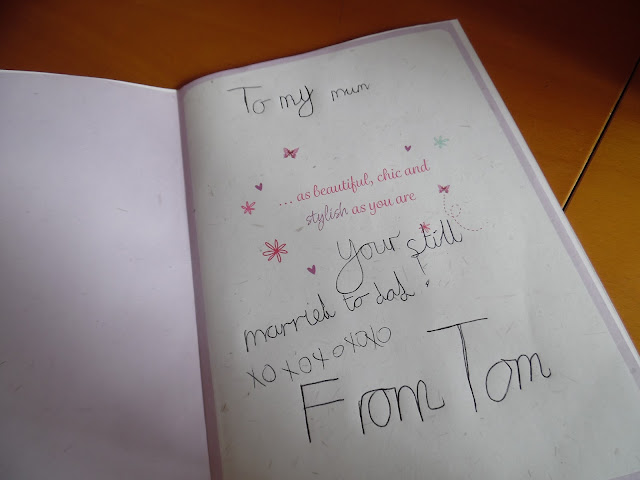 To my mum
... as beautiful, chic and
stylish as you are
Your still
married to dad!
xoxoxoxoxo
From Tom